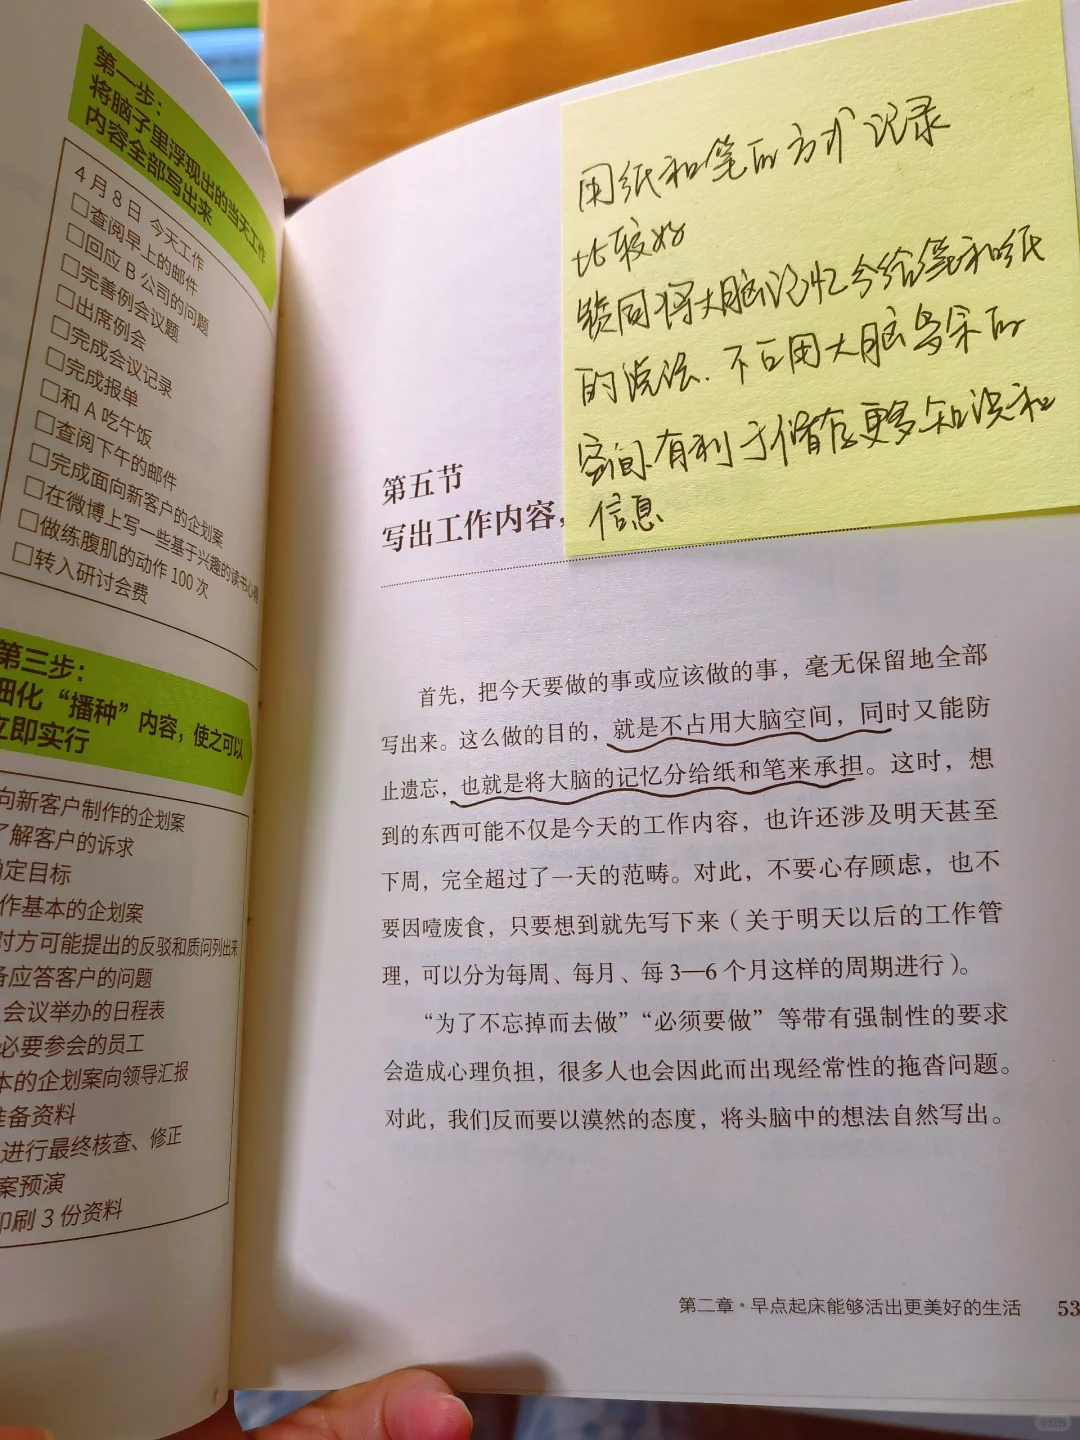 第一步：
将脑子里浮现出的当天工作
内容全部写出来
4月8日 今天工作
□查阅早上的邮件
□回应B公司的问题
□完善例会议题
□出席例会
□完成会议记录
□完成报单
□和A吃午饭
□查阅下午的邮件
□完成面向新客户的企划案
□在微博上写一些基于兴趣的读书心得
□做练腹肌的动作100次
□转入研讨会费
第三步：
细化“播种”内容，使之可以
立即实行
向新客户制作的企划案
了解客户的诉求
确定目标
作基本的企划案
对方可能提出的反驳和质问列出来
备应答客户的问题
会议举办的日程表
必要参会的员工
本的企划案向领导汇报
准备资料
进行最终核查、修正
案预演
印刷3份资料
用纸和笔的方式记录
比较好
赞同将大脑记忆分给笔和纸
的说法.不占用大脑多余的
空间.有利于储存更多知识和
信息
第五节
写出工作内容，
首先，把今天要做的事或应该做的事，毫无保留地全部
写出来。这么做的目的，就是不占用大脑空间，同时又能防
止遗忘，也就是将大脑的记忆分给纸和笔来承担。这时，想
到的东西可能不仅是今天的工作内容，也许还涉及明天甚至
下周，完全超过了一天的范畴。对此，不要心存顾虑，也不
要因噎废食，只要想到就先写下来（关于明天以后的工作管
理，可以分为每周、每月、每3—6个月这样的周期进行）。
“为了不忘掉而去做”“必须要做”等带有强制性的要求
会造成心理负担，很多人也会因此而出现经常性的拖沓问题。
对此，我们反而要以漠然的态度，将头脑中的想法自然写出。
第二章·早点起床能够活出更美好的生活 53